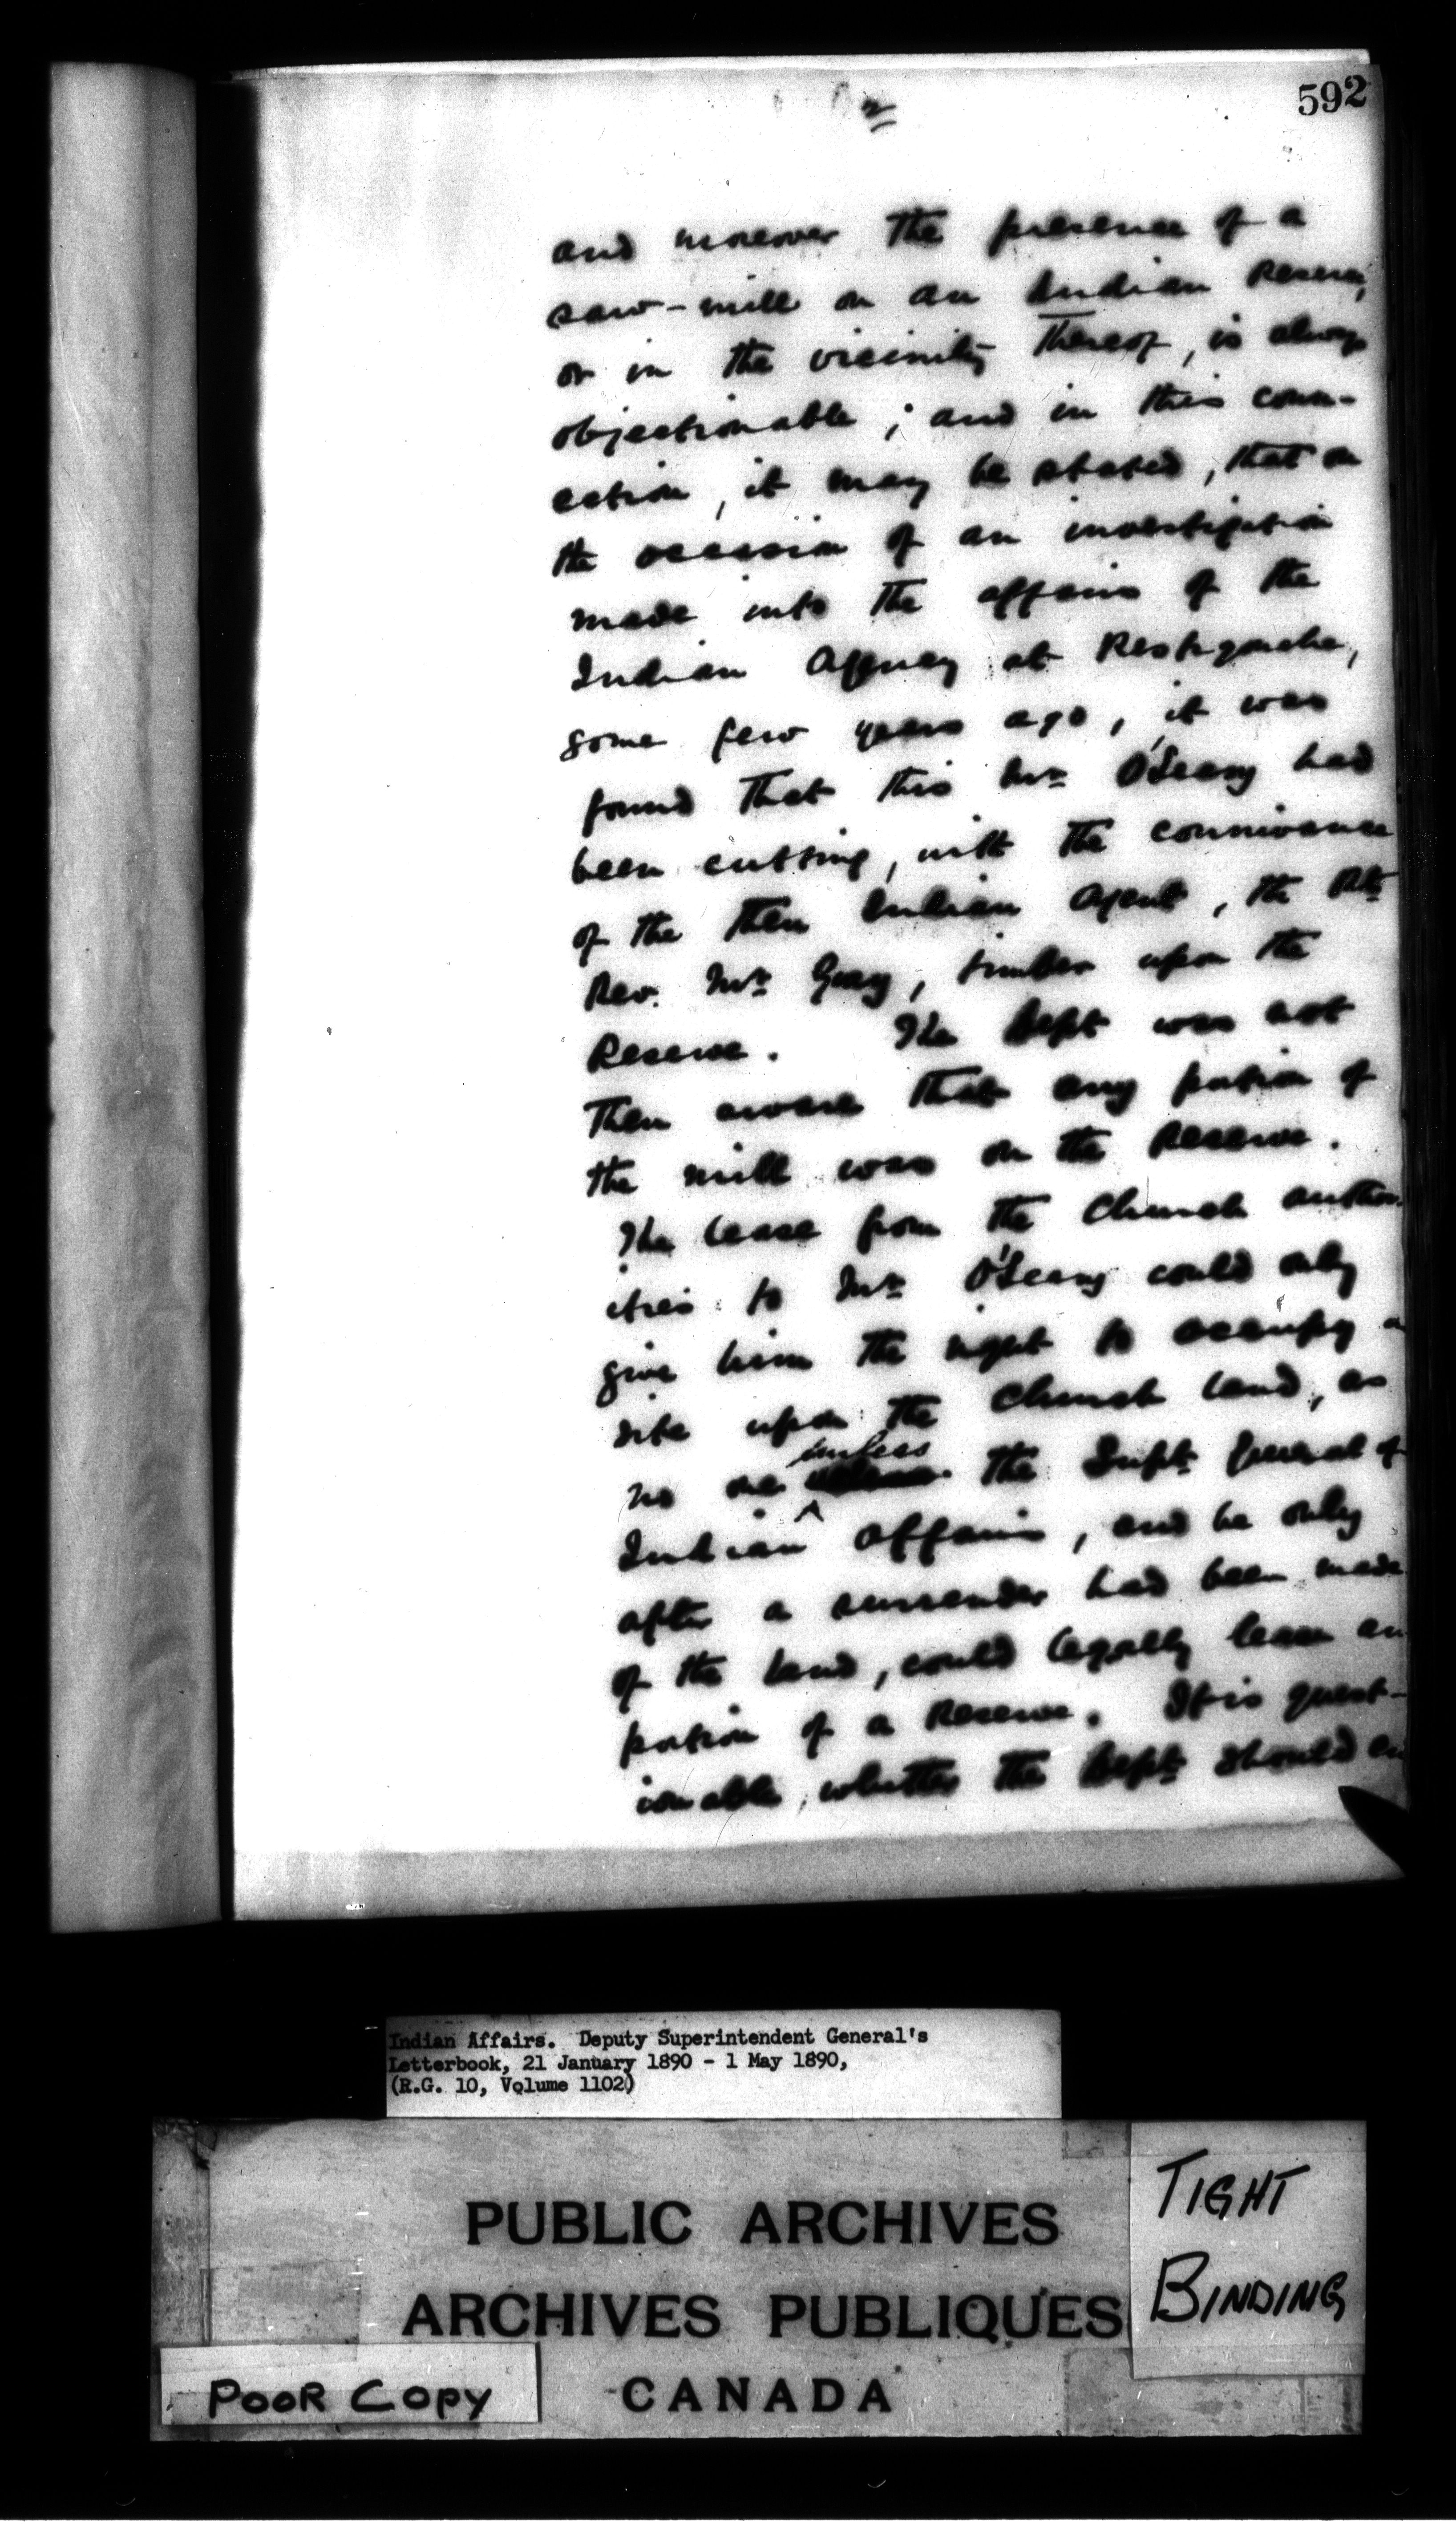 592
2
and moreover the presence of a
saw-mill on an Indian Reserve,
or in the vicinity thereof, is always
objectionable; and in this conn-
ection, it may be stated, that on
the occasion of an investigation
made into the affairs of the
Indian Agency at Restigouche,
some few years ago, it was
found that this Mr. O'Leary had
been cutting, with the connivance
of the then Indian Agent, the Rt
Rev. Mr. Guay, timber upon the
Reserve. The Dept was not
then aware that any portion of
the mill was on the Reserve.
The lease from the Church author-
ities to Mr. O'Leary could only
give him the right to occupy a
site upon the Church land, as
no one unless the Supt. General of
Indian Affairs, and he only
after a surrender had been made
of the land, could legally lease an
portion of a Reserve. It is quest-
ionable, whether the Dept. should en
Indian Affairs. Deputy Superintendent General's
Letterbook, 21 January 1890 - 1 May 1890,
(R.G. 10, Volume 1102)
PUBLIC ARCHIVES
ARCHIVES PUBLIQUES
CANADA
TIGHT
BINDING
POOR COPY